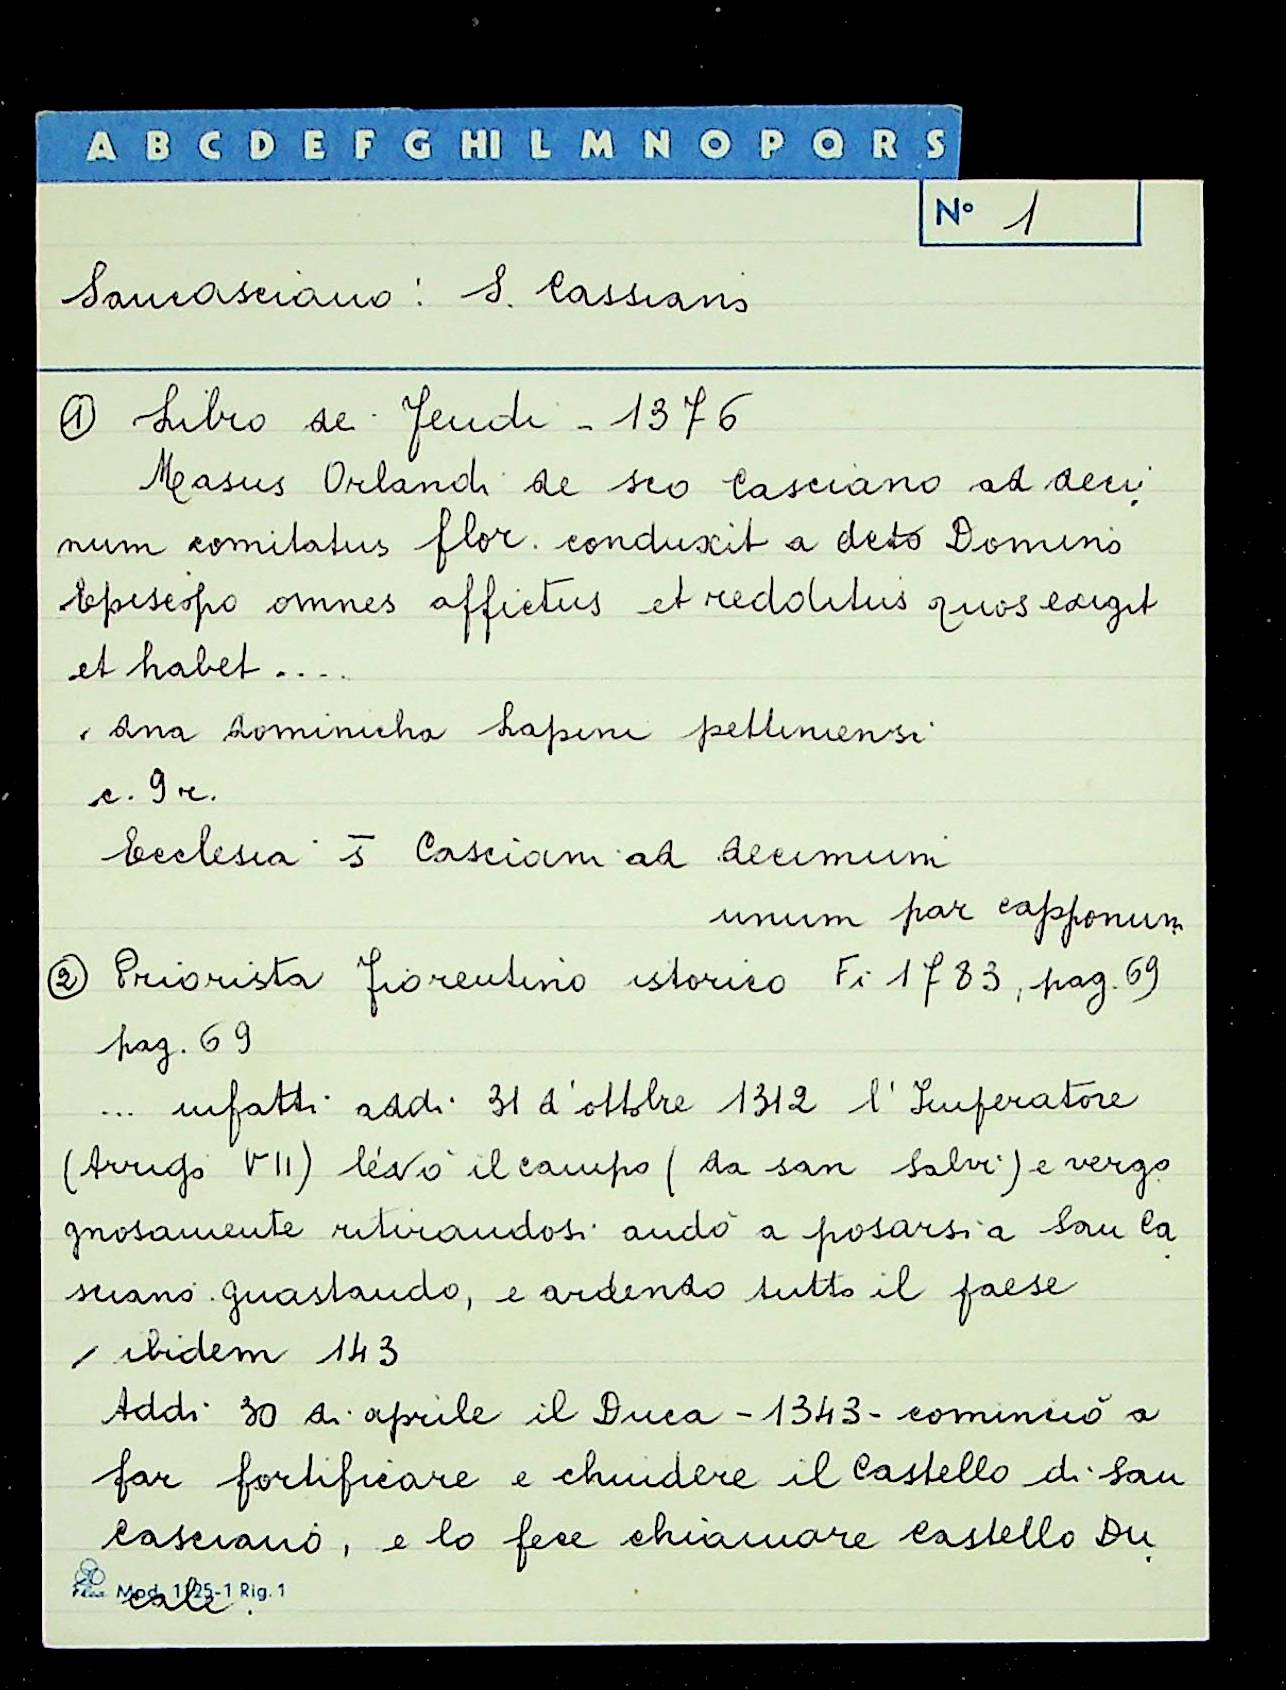 A B C D E F G HI L M N O P Q R S
N° 1
Sancasciano: S. Cassiano
① Libro de Feudi - 1376
Masus Orlandi de sco Casciano ad deci
num comitatus flor. conduxit a dcto Domino
Episcopo omnes affictus et redditus quos exigit
et habet ....
dna dominicha Lapini
c. 9 r.
Ecclesia s̄ Casciani ad decimum
unum par capponum
② Priorista fiorentino istorico Fi 1783, pag. 69
pag. 69
... infatti addi 31 d'ottbre 1312 l'Imperatore
(Arrigo VII) lévò il campo (da san Salvi) e vergo
gnosamente ritirandosi andò a posarsi a San Ca
sciano guastando, e ardendo tutto il paese
/ ibidem 143
Addi 30 di aprile il Duca - 1343 - cominciò a
far fortificare e chiudere il Castello di San
Casciano, e lo fece chiamare Castello Du
cale.
Mod. 1125-1 Rig. 1